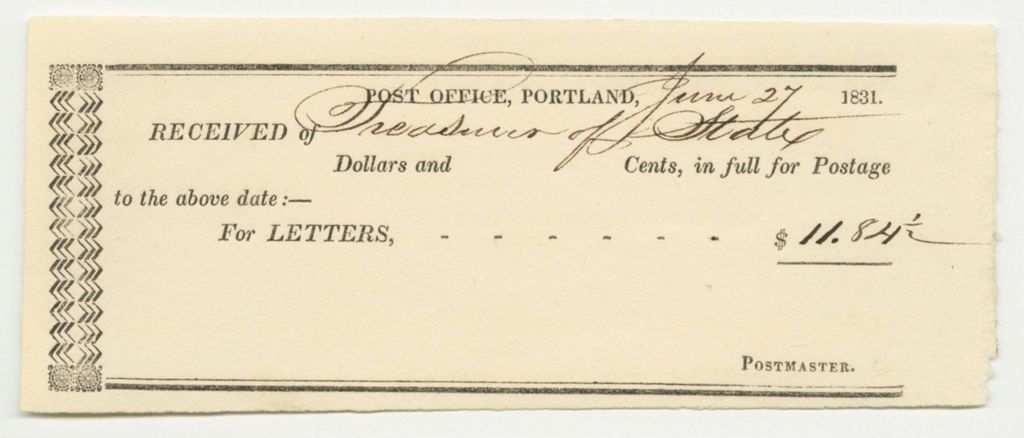 POST OFFICE, PORTLAND, June 27 1831.
RECEIVED of Treasurer of State
Dollars and Cents, in full for Postage
to the above date:—
For LETTERS, - - - - - - $ 11.84½
POSTMASTER.